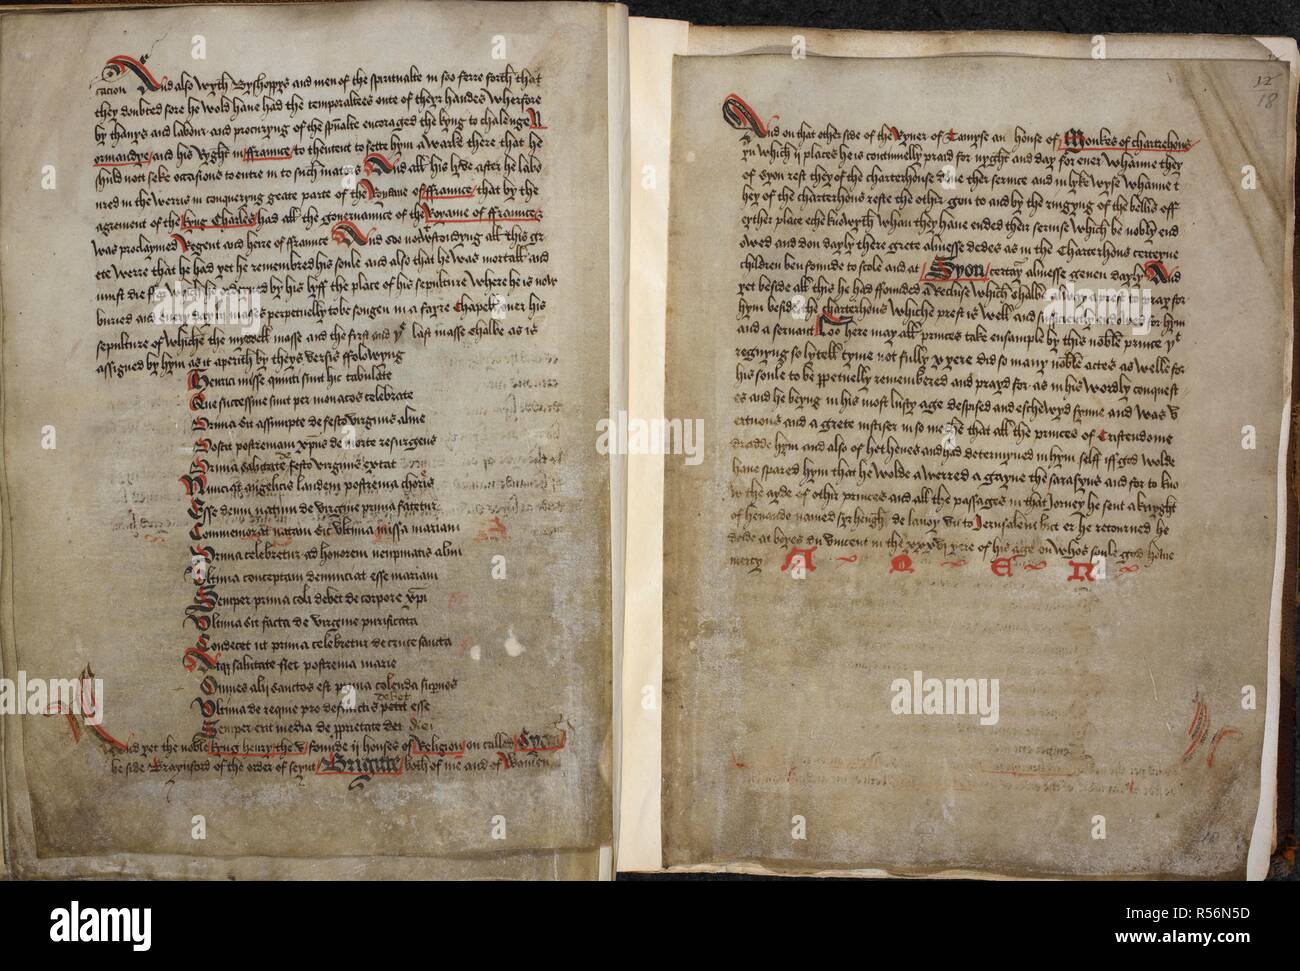 And also wyth Byshoppys and men of the spiritualte in soo ferre forth that
they doubted sore he wold have had the temporaltees oute of theyr handes wherfore
by thanys and labour and procuryng of the spualte encoraged the kyng to chalenge N
ormandye and his Ryght in ffraunce to thentent to sette hym a warke there that he
shuld nott seke occasions to entre in to such maters And all his lyve after he labo
ured in the werris in conqueryng grete parte of the Royame of ffraunce that by the
agrement of the kyng Charles had all the governaunce of the Royame of ffraunce &
was proclaymed Regent and heire of ffraunce And soo notwtstondyng all this gr
ete werre that he had yet he remembred his soule and also that he was mortall and
must die for which he ordeyned by his lyff the place of his sepulture where he is now
buried and every day iij masses perpetually to be songen in a fayre Chapell over his
sepulture of whiche the myddell masse and the first and yt last masse shalbe as is
assigned by hym as it aperith by theys versis ffolowyng
Henrici misse quinti sunt hic tabulate
Que successive sunt per monacos celebrate
Prima sit assumpte de festo virginis alme
Poscit postremam xpus de morte resurgens
Prima salutate de festo virginis extat
Nunciat angelicis laudem postrema choris
Esse deum natum de virgine prima fatetur
Commemorat natam sic ultima missa mariam
Prima celebretur ad honorem neupmatis almi
Ultima conceptam denunciat esse mariam
Semper prima coli debet de corpore xpi
Ultima sit facta de virgine purificata
Condecet ut prima celebretur de cruce sancta
Atqz salutate fiet postrema marie
Omnes alij sanctos est prima colenda supnos
Ultima de reque pro defunctis petit esse
Semper erit media de pprietate dei diei
And yet the noble kyng henry the v founde ij houses of Religion on called Syon
beside Braynford of the order of seynt Brigitte both of me and of Wamen
12
18
And on that other side of the Ryver of Tamyse an house of Monkes of chartehous
yn which ij places he is continuelly praid for nyght and day for ever whanne they
of Syon rest they of the charterhouse done ther service and in lyke wyse whanne t
hey of the charterhous reste the other gon to and by the ryngyng of the bellis off
eyther place eche knowyth whan they have ended their servise which be nobly end
owed and don dayly there grete almesse dedes as in the Charterhous certeyne
children ben founde to scole and at Syon certay almesse geven dayly And
yet beside all this he had ffounded a Recluse which shalbe alway a prest to pray for
hym beside the charterhous whiche prest is well and sufficiently endowed for hym
and a servant Loo here may all princes take ensample by this noble prince yt
regnyng so lytell tyme not fully x yere did so many noble actes as welle for
his soule to be ppetuelly remembred and prayd for as in his wordly conquest
es and he beyng in his most lusty age despised and eschewyd synne and was v
ertuous and a grete justiser in so meche that all the princes of Cristendome
dradde hym and also of hethenes and had determyned in hym self iff god wolde
have spared hym that he wolde a werred a gayne the sarasyns and for to kno
w the ayde of other princes and all the passages in that jorney he sent a knyght
of henaude named syr hewgh de lanoy un to Jerusalem but er he retorned he
deide at boyes du vincent in the xxxvi yere of his age on whos soule god have
mercy A M E N
alamy
alamy
alamy stock photo
Image ID: R56N5D
www.alamy.com